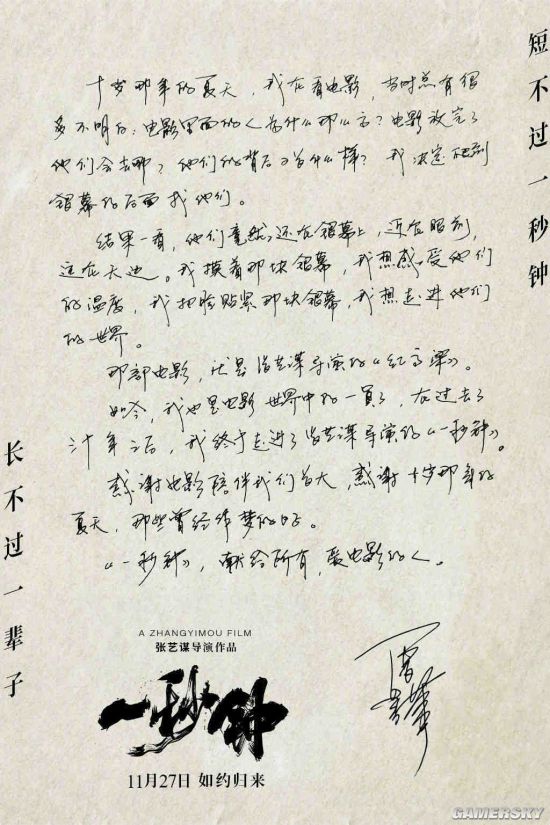 短不过一秒钟
十岁那年的夏天，我在看电影，当时总有很
多不明白：电影里面的人为什么那么高？电影放完了
他们会去哪？他们的背后又什么样？我决定跑到
银幕的后面找他们。
结果一看，他们竟然还在银幕上，近在眼前，
远在天边。我摸着那块银幕，我想感受他们
的温度，我把脸贴紧那块银幕，我想走进他们
的世界。
那部电影，就是张艺谋导演的《红高粱》。
如今，我也是电影世界中的一員了，在过去了
年之后，我终于走进了张艺谋导演的《一秒钟》。
感谢电影陪伴我们长大，感谢十岁那年的
夏天，那些曾经作梦的日子。
《一秒钟》，献给所有爱电影的人。
长不过一辈子
A ZHANGYIMOU FILM
张艺谋导演作品
一秒钟
11月27日 如约归来
GAMERSKY